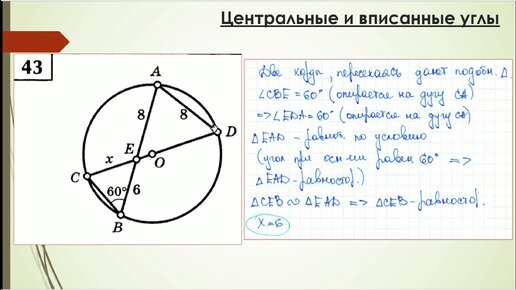 Центральные и вписанные углы
43
A
8
8
D
E
O
x
C
60°
6
B
Две хорды, пересекаясь дают подобн. Δ.
∠CBE = 60° (опирается на дугу CA)
=> ∠EDA = 60° (опирается на дугу CA)
ΔEAD - равноб. по условию
(угол при осн-ии равен 60° =>
ΔEAD - равностор.)
ΔCEB ∾ ΔEAD => ΔCEB - равностор.
x = 6